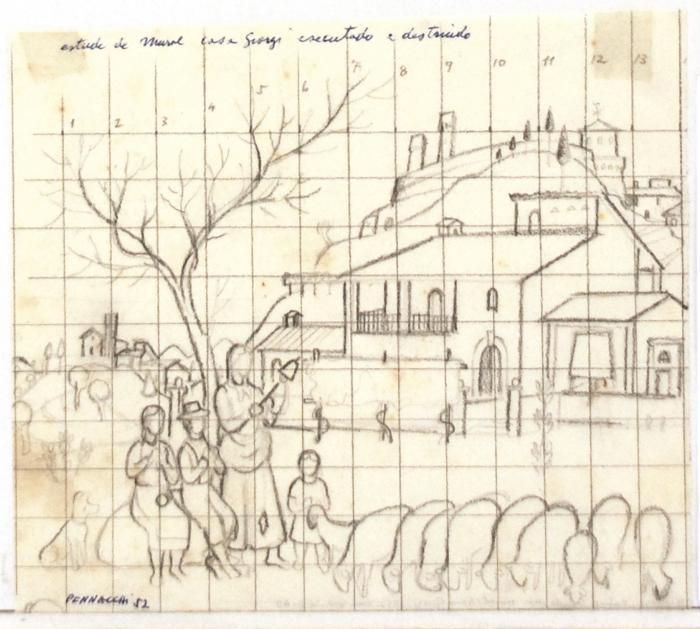 estudo de Mural casa Giorgi executado e destruido
1 2 3 4 5 6 7 8 9 10 11 12 13
PENNACCHI 52